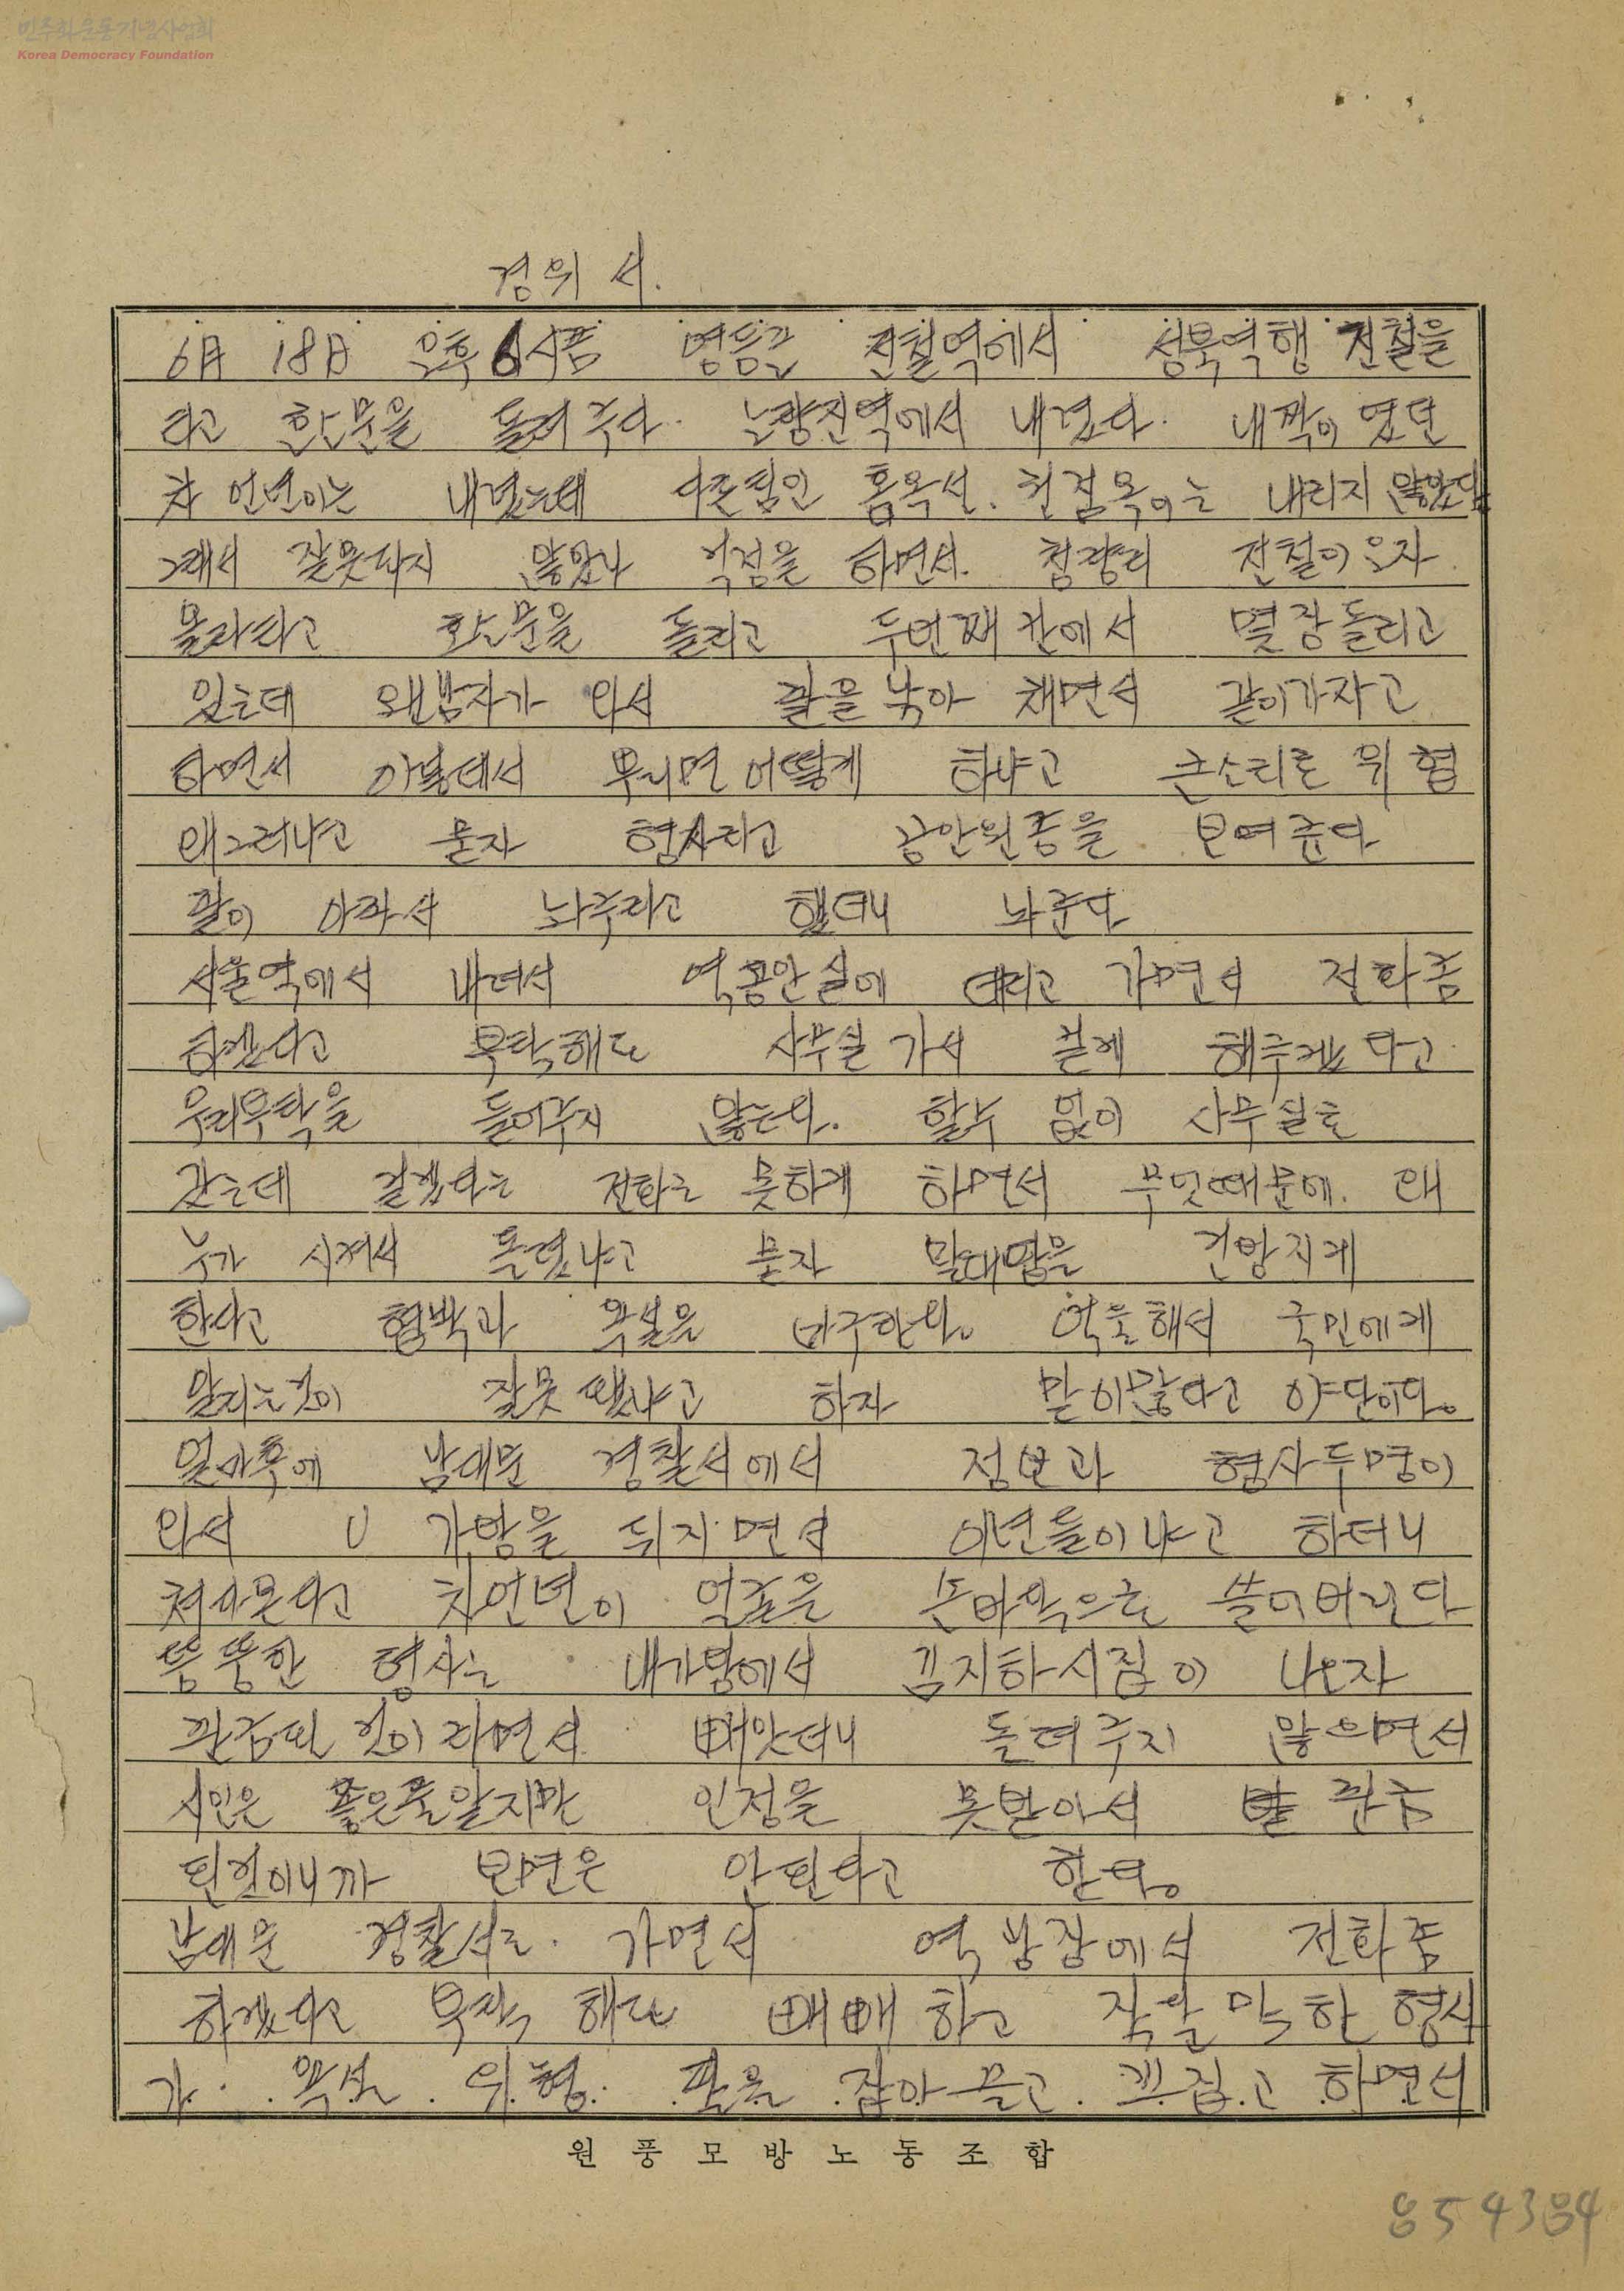 민주화운동기념사업회
Korea Democracy Foundation
경위서.
6月 18日 오후 6시쯤 영등포 전철역에서 성북역행 전철을
타고 호소문을 돌려주다 노량진역에서 내렸다. 내짝이었던
차언년이는 내렸는데 다른팀인 홍옥선. 최점옥이는 내리지 않았다
그래서 잘못되지 않았나 걱정을 하면서. 청량리 전철이 오자
올라타고 호소문을 돌리고 두번째 칸에서 몇장돌리고
있는데 왠남자가 와서 팔을 낚아 채면서 같이가자고
하면서 이런데서 뿌리면 어떻게 하냐고 큰소리로 위협
왜그러냐고 묻자 형사라고 공안원증을 보여준다
팔이 아파서 놔주라고 했더니 놔준다
서울역에서 내려서 역공안실에 데리고 가면서 전화좀
하겠다고 부탁해도 사무실가서 걸게 해주겠다고
우리부탁을 들어주지 않는다. 할수 없이 사무실로
갔는데 걸겠다는 전화는 못하게 하면서 무엇때문에. 왜
누가 시켜서 돌렸냐고 묻자 말대답을 건방지게
한다고 협박과 욕설을 퍼부한다. 억울해서 국민에게
알리는것이 잘못됐냐고 하자 말이많다고 야단이다.
얼마후에 남대문 경찰서에서 정보과 형사두명이
와서 가방을 뒤지면서 이년들이냐고 하더니
쳐다본다고 차언년이 얼굴을 손바닥으로 쓸어버린다
뚱뚱한 형사는 내가방에서 김지하시집이 나오자
판금된 것이라면서 빼앗더니 돌려주지 않으면서
시인은 좋은줄알지만 인정을 못받아서 판금
된것이니까 보면은 안된다고 한다.
남대문 경찰서로 가면서 역광장에서 전화좀
하겠다고 부탁해도 빼빼하고 작달막한 형사
가. 욕설. 위협. 팔을 잡아끌고. 꼬집고 하면서
원풍모방노동조합